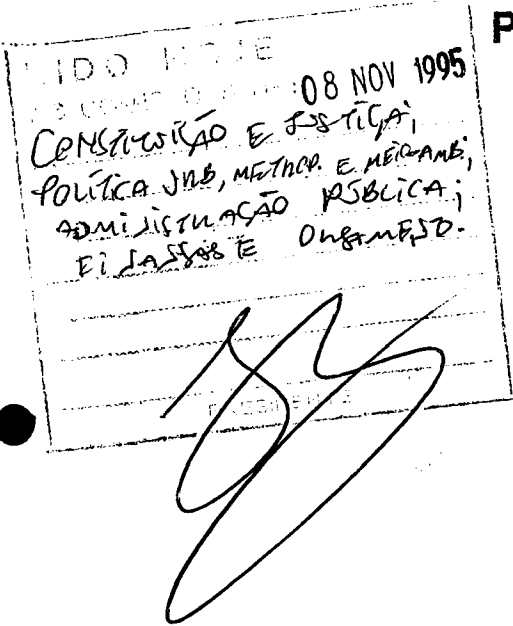 LIDO HOJE P
08 NOV 1995
CONSTITUIÇÃO E JUSTIÇA;
POLÍTICA URB, METROP. E MEIO AMB.;
ADMINISTRAÇÃO PÚBLICA;
FINANÇAS E ORÇAMENTO.
PRESIDENTE